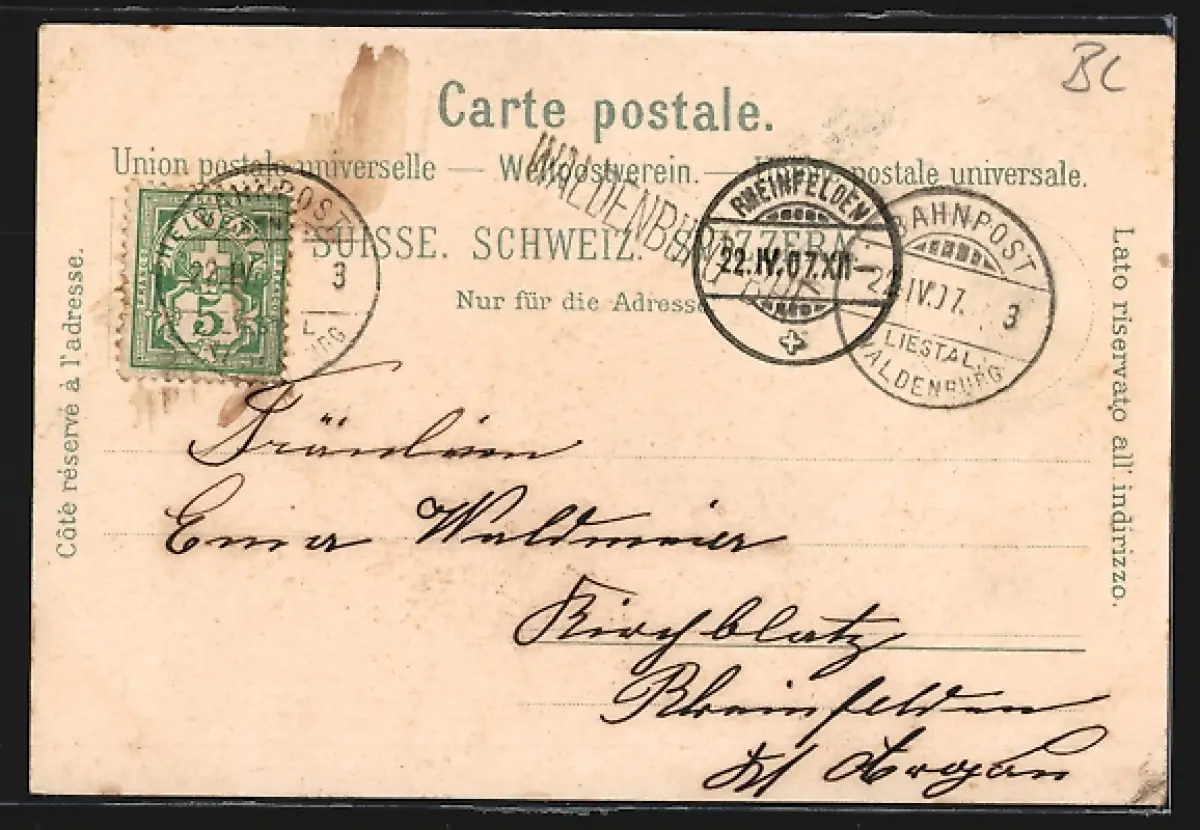 BL
Carte postale.
Union postale universelle — Weltpostverein. — postale universale.
SUISSE. SCHWEIZ. SVIZZERA.
Nur für die Adresse
Côté réservé à l'adresse.
Lato riservato all' indirizzo.
HELVETIA
FRANCO
5
BAHNPOST
22 IV 3
WALDENBURG
RHEINFELDEN
22.IV.07.XII—
BAHNPOST
22 IV.07. 3
LIESTAL.
WALDENBURG
Fräulein
Emma Waldmeier
Kirchblatz
Rheinfelden
Kt Argau